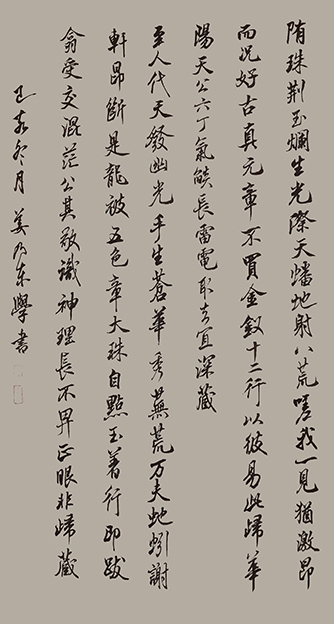 隋珠荆玉爛生光際天蟠地射八荒嗟我一見猶激昂
而況好古真元章不買金釵十二行以彼易此歸華
陽天公六丁氣燄長雷電取去宜深藏
至人代天發幽光手生蒼華秀蕪荒万夫蚍蚓謝
軒昂斷是龍被五色章大珠自點玉著行即跋
翕受交混茫公其敬識神理長不畀正眼非歸藏
冬月姜乃東學書